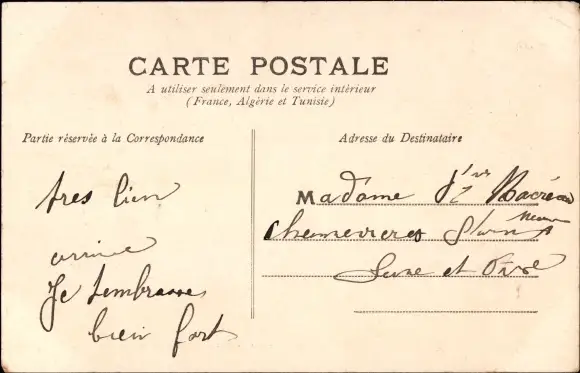 CARTE POSTALE
A utiliser seulement dans le service intérieur
(France, Algérie et Tunisie)
Partie réservée à la Correspondance
Adresse du Destinataire
tres bien
arrivée
Je tembrasse
bien fort
Madame
Chenevieres
Seine et Oise